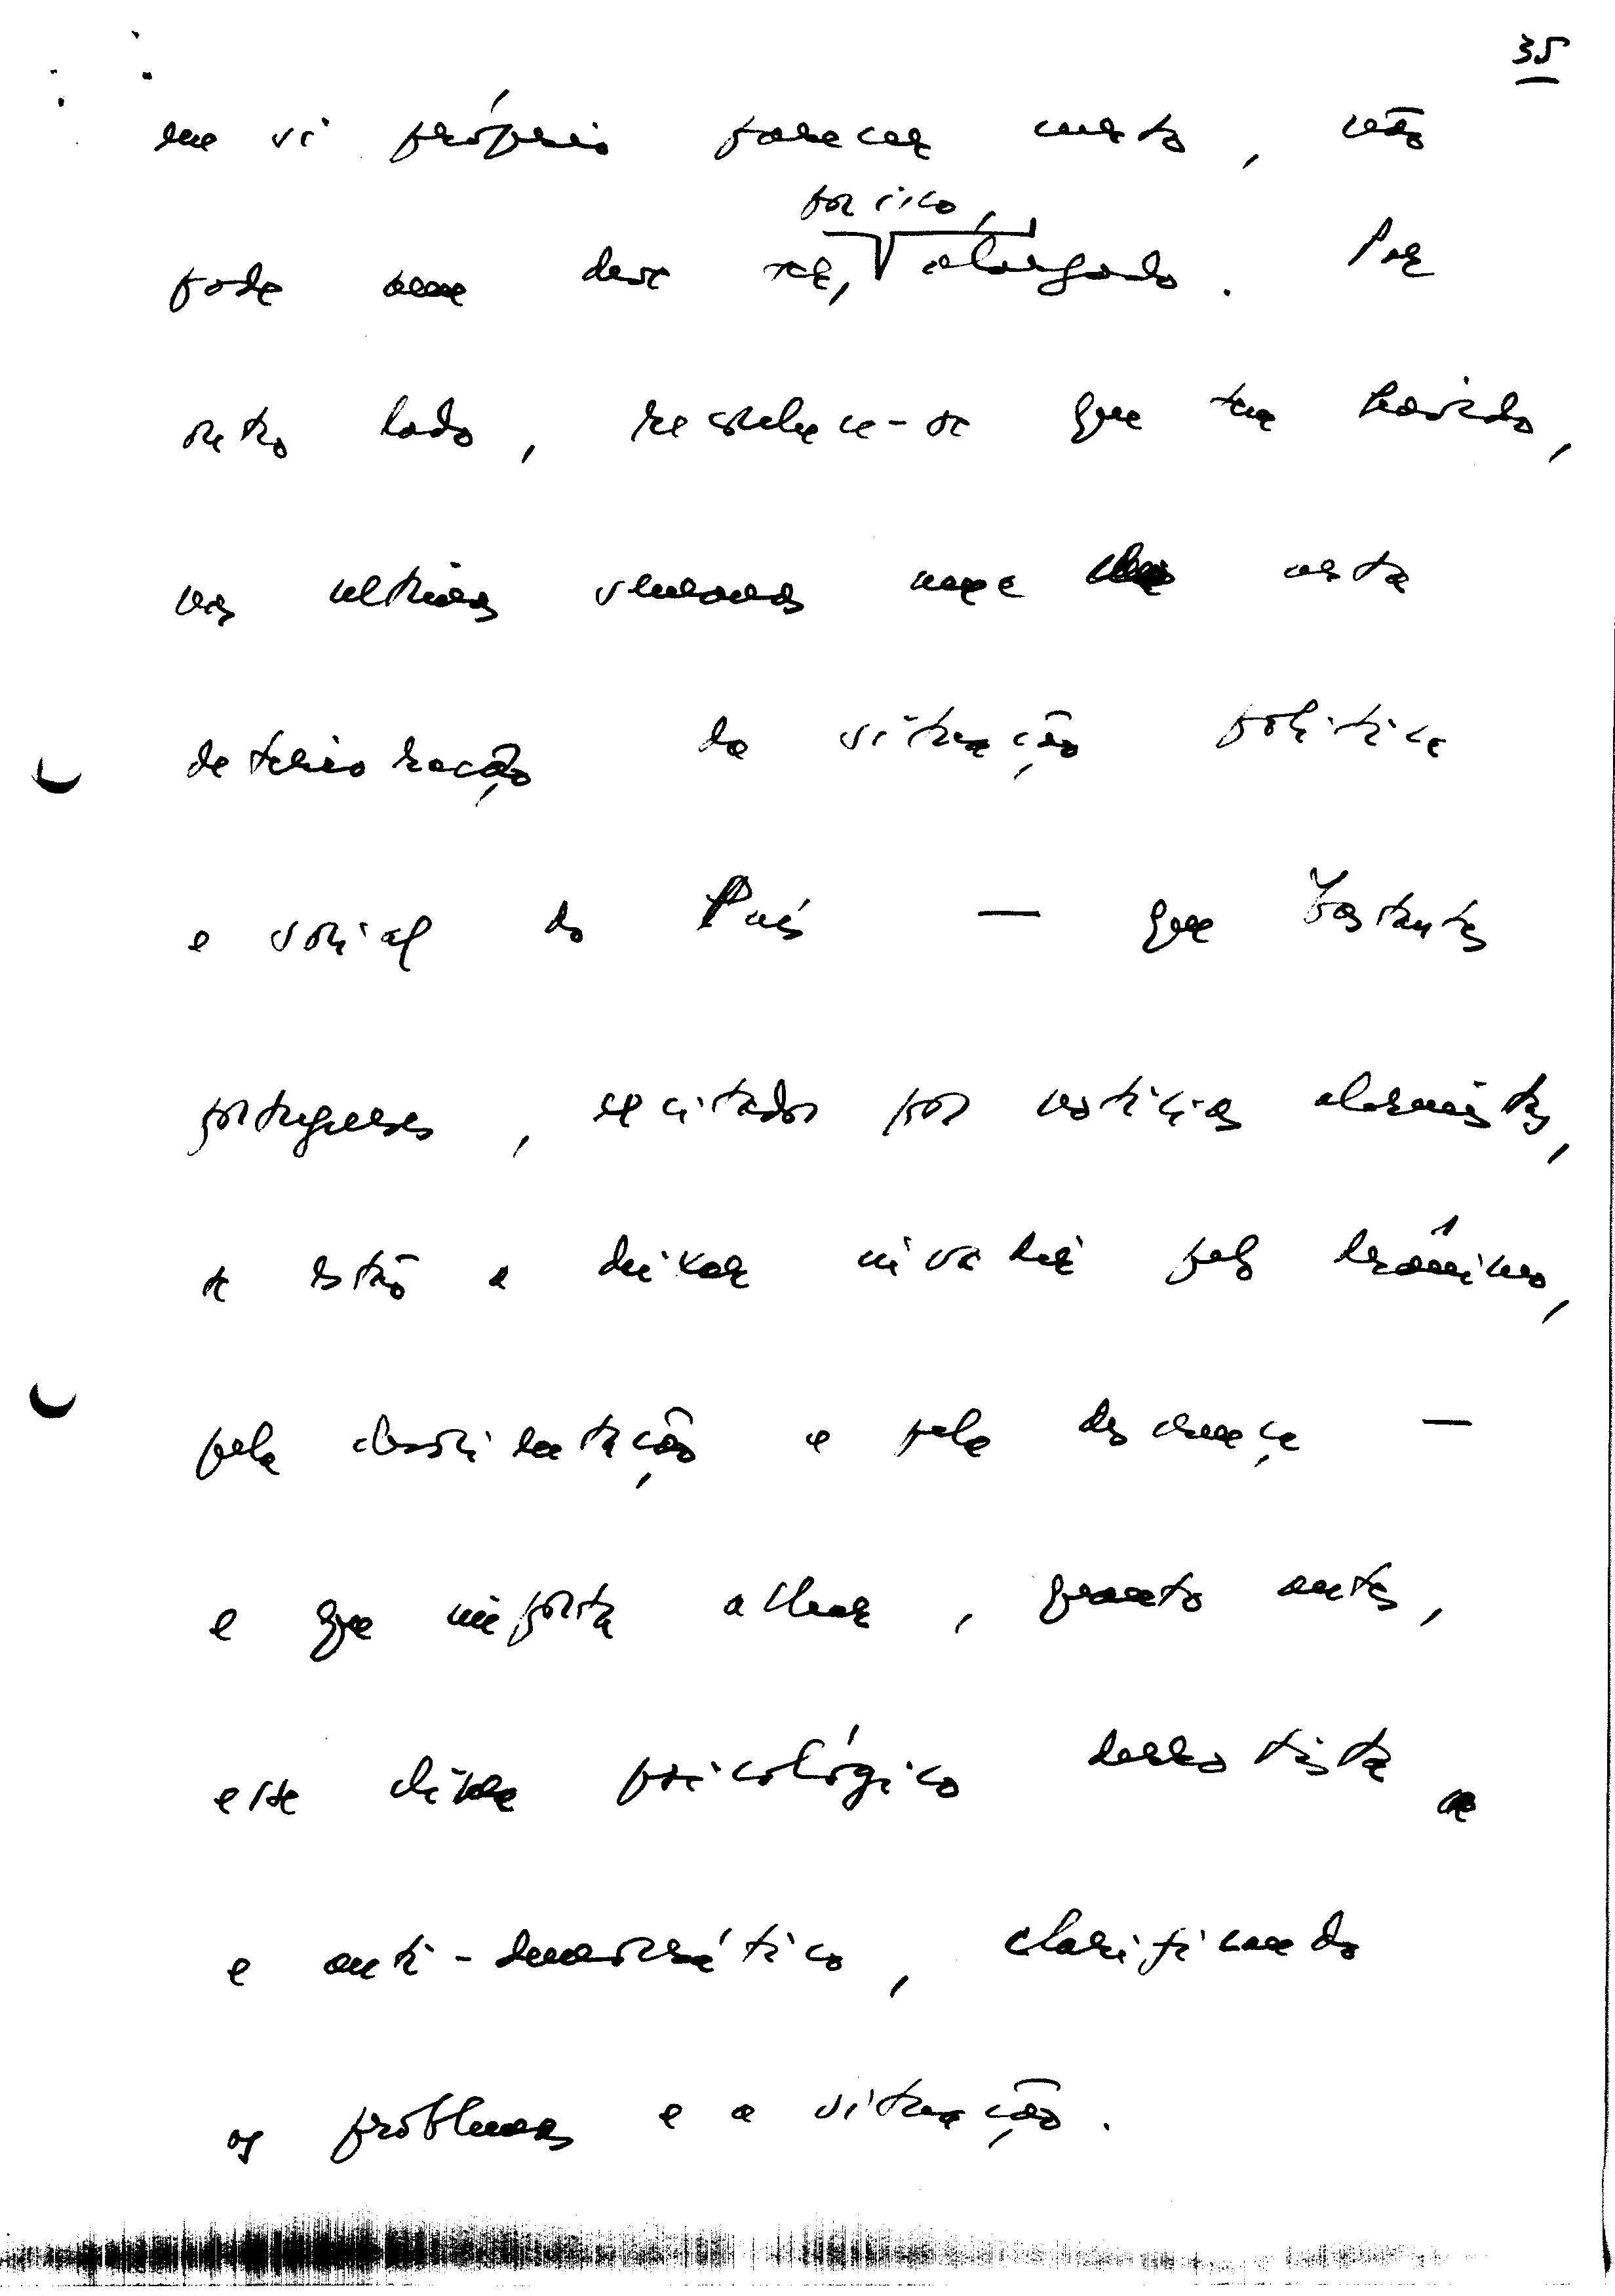 35
em si próprio parecer curto, não
por isso,
pode nem deve ser, alargado. Por
outro lado, reconhece-se que tem havido,
nas ultimas semanas uma certa
deterioração da situação politica
e social do País — que bastantes
portugueses, excitados por noticias alarmistas,
se estão a deixar invadir pelo desânimo,
pela desorientação e pela descrença —
e que importa altear, quanto antes,
este clima psicológico derrotista
e anti-democrático, clarificando
os problemas e a situação.